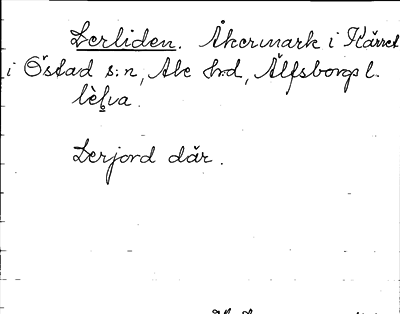 Lerliden. Åkermark i Kärret
i Östad s:n, Ale hrd, Älfsborgs l.
Lerjord där.